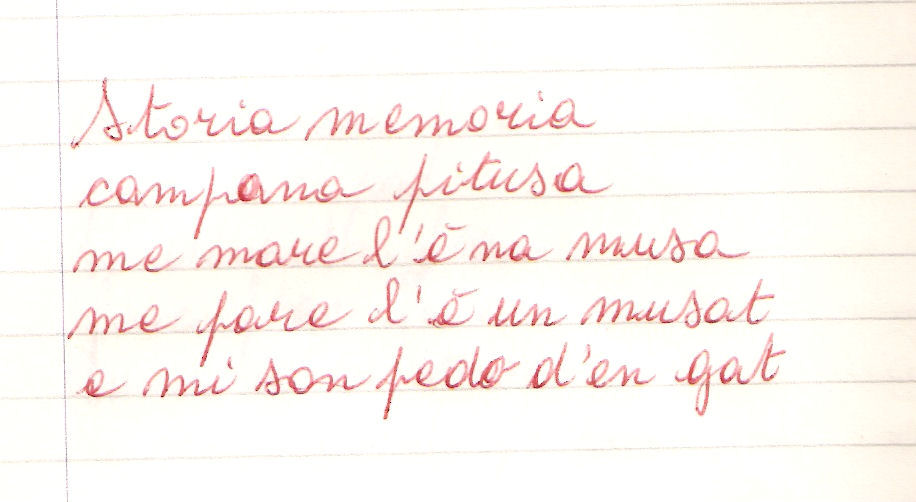 Storia memoria
campana pitusa
me mare l'è na musa
me pare l'è un musat
e mi son pedo d'en gat